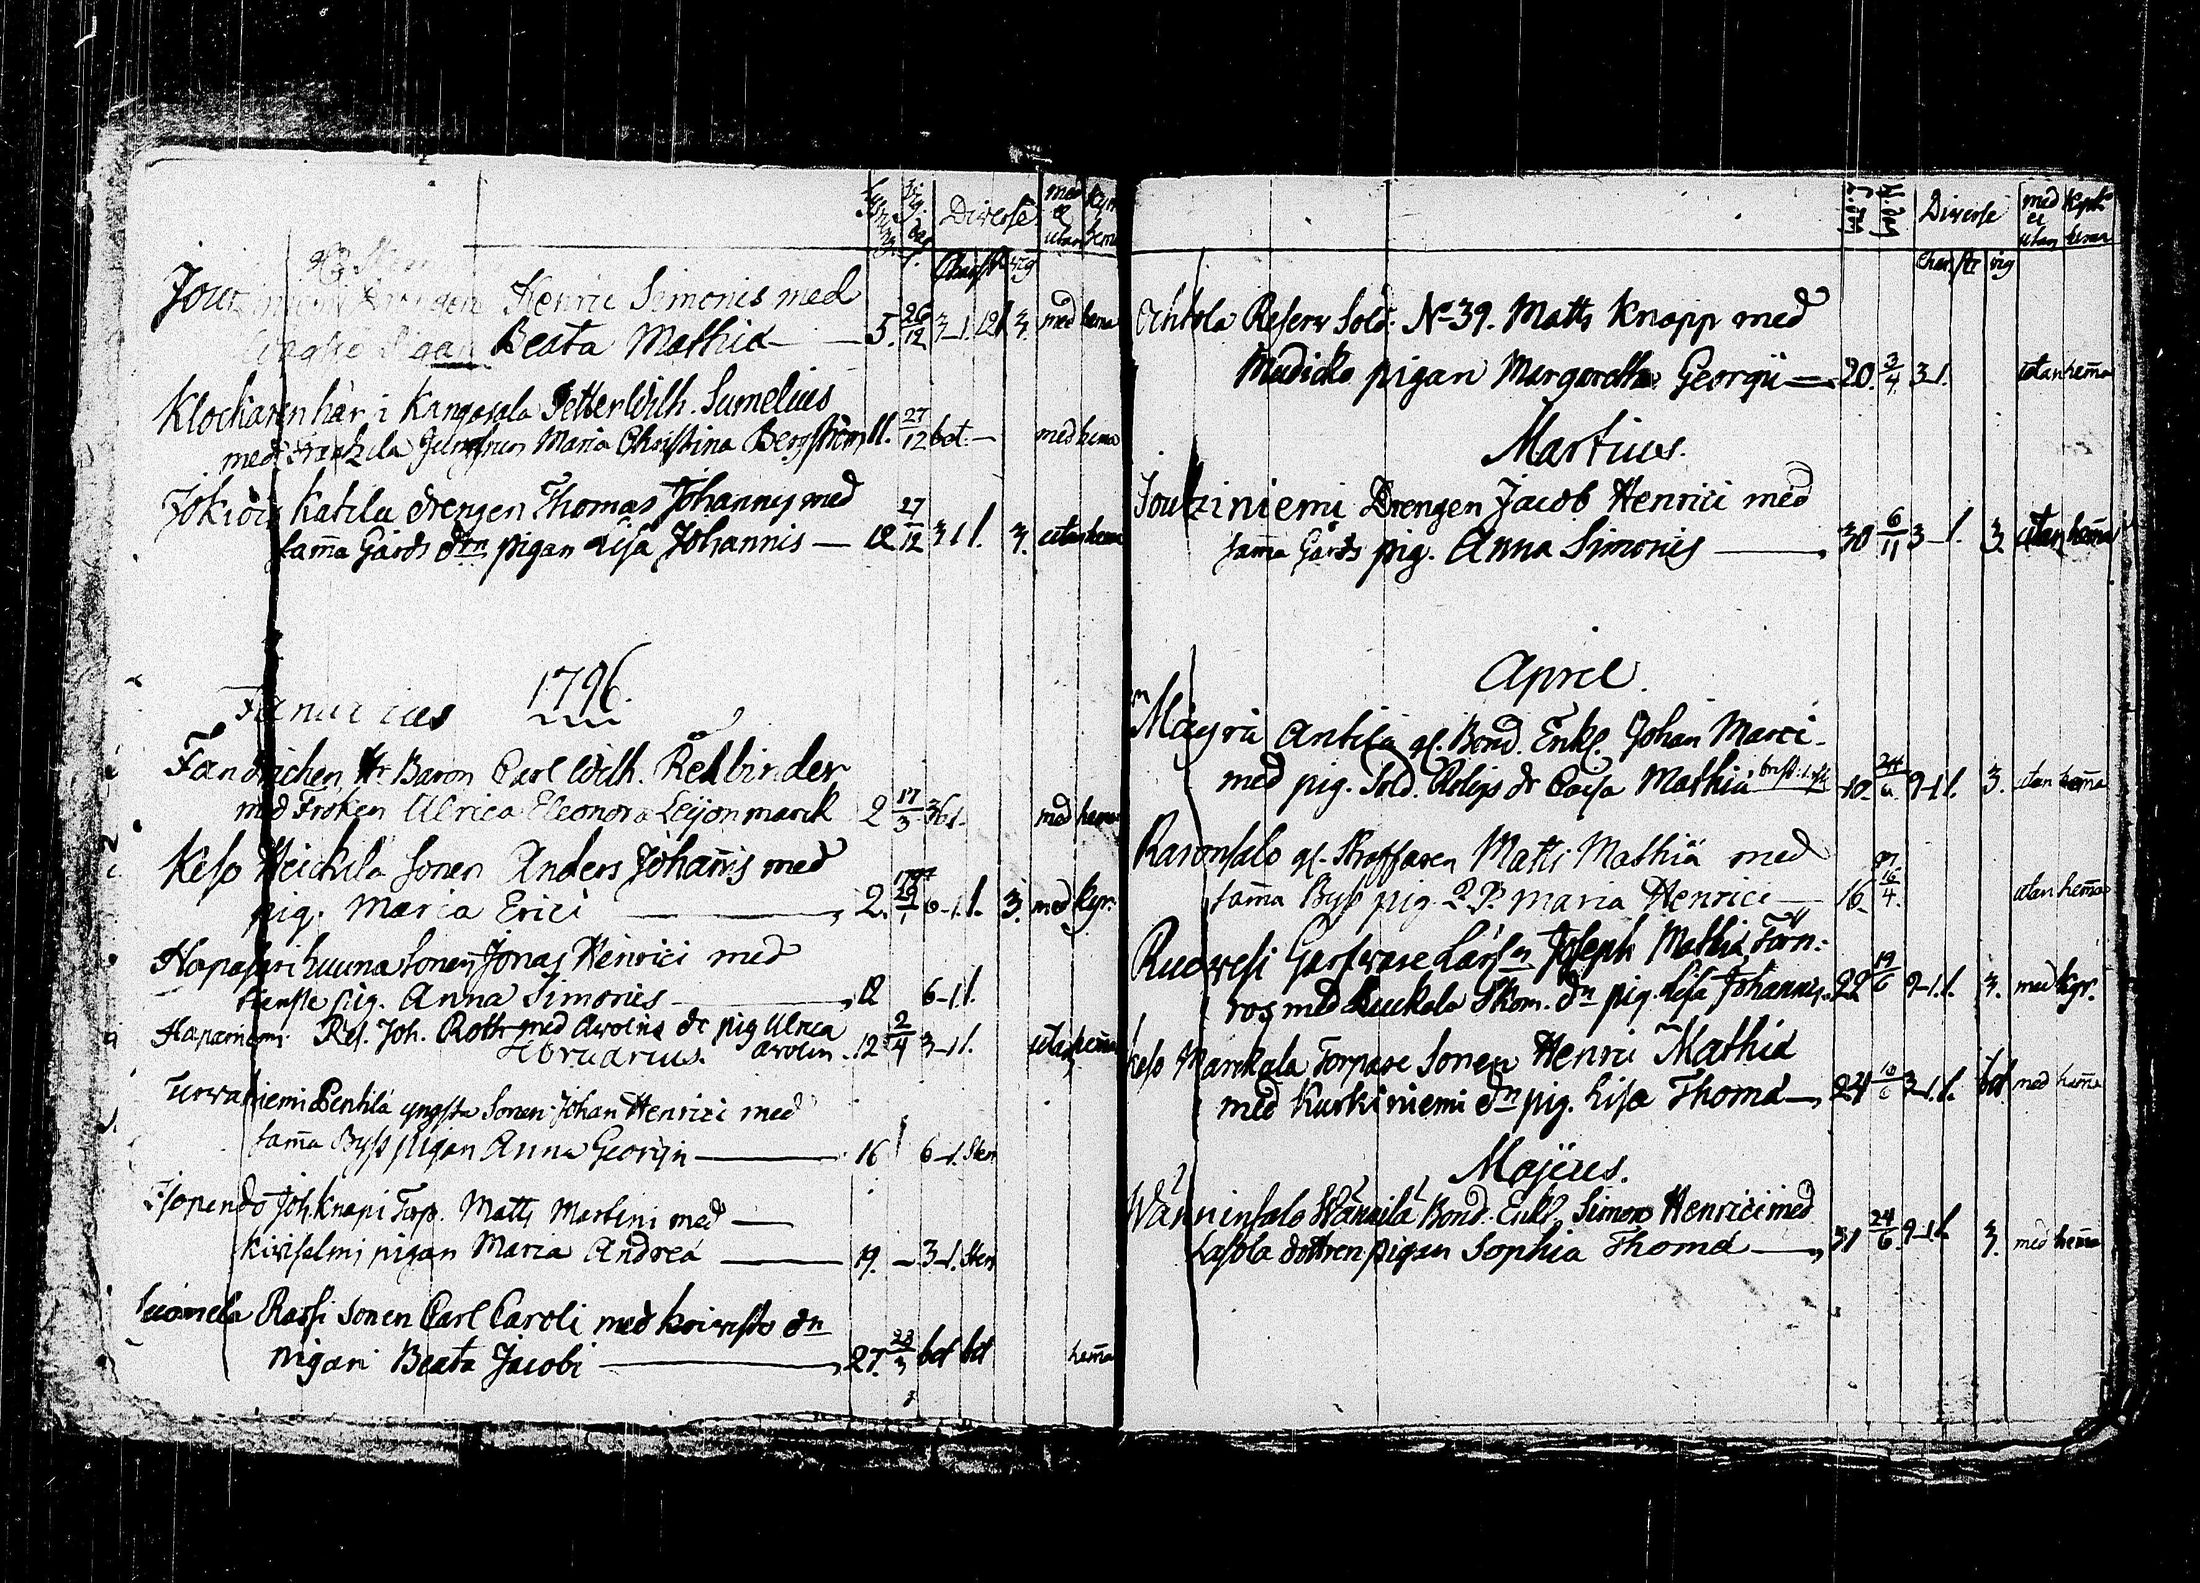 Diverse med el utan
Henric Simonis med
Beata Mathiæ — 5. 26/12 3-1. 12 3. med hema
Klockaren här i Kangasala Petter Wilh. Sumelius
med Jungfrun Maria Christina Bergström 11. 27/12 bet. — med hema
Jokiois Katila drengen Thomas Johannis med
sam̄a Gårds dn pigan Lisa Johannis — 12 27/12 3 1 l. 3. utan hema
1796.
Januarius
Fändrichen Hr Baron Carl Wilh. Rehbinder
med Fröken Ulrica Eleonora Leijonmarck 2 17/3 36 l. med hema
Keso Heickilä sonen Anders Johan̄is med
pig. Maria Erici — 2. 6-1. l. 3. med kyr.
Huuna sonen Jonas Henrici med
pig. Anna Simonis — 12 6-1 l.
Hapaniemi Res. Joh. Roth med Arolins dr pig Ulrica
Arolin. 12 2/4 3-1 l. utan hem̄a
Februarius.
Turwaniemi Pentilä yngsta Sonen Johan Henrici med
sam̄a Bys pigan Anna Georgii — 16 6-1. Sten
Isopendo Joh. Knapi Torp. Matts Martini med —
Kiwisalmi pigan Maria Andreæ — 19. — 3-1. Sten
Suomela Rassi Sonen Carl Caroli med Koiwisto dn
pigan Beata Jacobi — 27. 28/3 bet bet hem̄a
Diverse med el utan
Char. st. vig
Ochtola Reserv Sold. No 39. Matts Knapp med
Mudicka pigan Margaretha Georgii — 20. 3/4 3-1. utan hem̄a
Martius.
Joutziniemi Drengen Jacob Henrici med
sam̄a Gårds pig. Anna Simonis — 30 6/11 3-1. 3. utan hem̄a
April.
Mäyrä Antila gl. Bond. Enkl. Johan Marci
med pig. Sold. dr Caisa Mathiæ 10. 9-1 l. 3. utan hem̄a
Raronsalo gl. Matts Mathiæ med
sam̄a Bys pig. Q. P. Maria Henrici — 16. 16/4. utan hem̄a
Ruowesi Garfware Lärl.n Joseph Mathiæ Törn-
ros med Suckala Skom. dn pig. Lisa Johannis. 22 19/6 9-1. l. 3. med kyr.
Keso Marckala Torpare Sonen Henric Mathiæ
med Kurkiniemi dn pig. Lisa Thomæ — 24 10/6 3-1. l. bet med hem̄a
Majus.
Wänninsalo Wännilä Bond. Enkl. Simon Henrici med
Lasola dottren pigan Sophia Thomæ — 31 24/6. 9-1 l. 3. med hem̄a